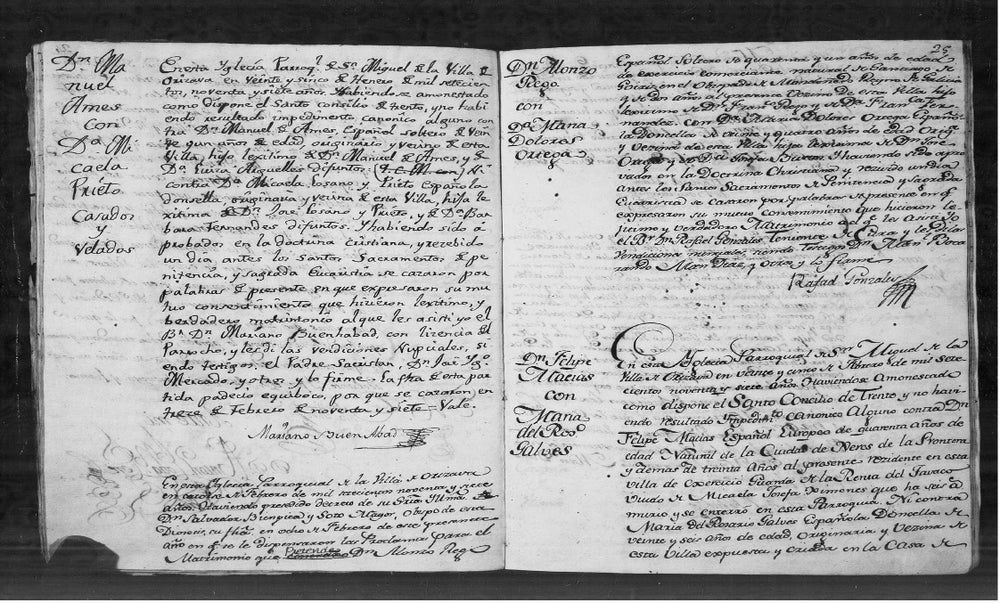 Dn. Ma
nuel
Ames
con
Da. Mi
caela
Prieto
Casados
y
Velados
En esta Yglecia Parroql. de Sn. Miguel de la Villa de
Orizava en veinte y sinco de Henero de mil setecien
tos, noventa, y siete años. Habiendose amonestado
como dispone el Santo consilio de trento, y no habi
endo resultado impedimento canonico alguno con
tra Dn. Manuel de Ames, Español soltero de vein
te y un años de edad, originario y vecino de esta
Villa, hijo lexitimo de Dn. Manuel de Ames, y de
Da. Luisa Arguelles difuntos. Ni
contra Da. Micaela Losano, y Prieto Española
donsella, originaria y vecina de esta Villa, hija le
xitima de Dn. Jose Losano y Prieto, y de Da. Bar
bara Fernandes difuntos. Y habiendo sido a
probados en la doctrina cristiana, y recebido
un dia antes los Santos Sacramentos de pe
nitencia, y sagrada Eucaristia se cazaron por
palabras de presente en que expresaron su mu
tuo consentimiento que hizieron lexitimo, y
berdadero matrimonio al que les asisti yo el
Br. Dn. Mariano Buenhabad, con licencia del
Parrocho, y les di las vendiciones Nupciales, si
endo testigos el Padre Sacristan, Dn. José Ygo.
Mercado, y otros y lo firme. la fha de esta par
tida padecio equiboco, por que se cazaron en
trece de Febrero de noventa, y siete = Vale.
Mariano Buen Abad
En esta Yglecia Parroquial de la Villa de Orizava
en catorce de Febrero de mil setecientos noventa y siete
años. Haviendo precedido decreto de su Sria Yllma.
Dn. Salvador Biempica y Soto Mayor, Obispo de esta
Diocesis, su fha. en ocho de Febrero de este presente
año en qe. se le dispensaron las Proclamas para el
Matrimonio que Pretende Dn. Alonso Rego
25
Dn. Alonzo
Rego
con
Da. Maria
Dolores
Ortega
Español Soltero de quarenta y un años de edad
de exercicio comerciante, natural de Santiago de
en el Obispado de Mondoñedo Reyno de Galicia
y de dos años al presente Vezino de esta Villa hijo
lexitimo de Dn. Franco. Rego y de Da. Franca. Fer
nandez. Con Da. Maria Dolores Ortega Española
Doncella de veinte y quatro años de edad Orign.
y Vezina de esta Villa hija lexitima de Dn. Jose
Ortega y de Da. Josefa Y haviendo sido apro
vados en la Doctrina Christiana y recivido un dia
antes los Santos Sacramentos de Penitencia y Sagrada
Eucaristia se casaron por palabras de presente en qe.
expresaron su mutuo consentimiento que hicieron le
jitimo y verdadero Matrimonio al qe. les asisti yo
el Br. Dn. Rafael Gonzales teniente de Cura y les di las
Vendiciones nupciales, siendo testigos Dn.
y otros y lo firme
Rafael Gonzales
Dn. Felipe
Macias
con
Maria
del Roso.
Galves
En esta Yglecia Parroquial de Sn. Miguel de la
Villa de Orizava en veinte y cinco de Febrero de mil sete
cientos noventa y siete años Haviendose Amonestado
como dispone el Santo Concilio de Trento y no havi
endo resultado Ympedimto. canonico Alguno contra Dn.
Felipe Macias Español Europeo de quarenta Años de
edad Natural de la Ciudad de Xeres de la Frontera
y demas de treinta Años al presente rezidente en esta
villa de exercicio Guarda de la Renta del Tavaco
Viudo de Micaela Josefa Ximenes que ha seis a
murio y se enterró en esta Parroquia. Ni contra
Maria del Rosario Galves Española Doncella de
veinte y seis años de edad, originaria y Vezina de
esta Villa expuesta y criada en la Casa de